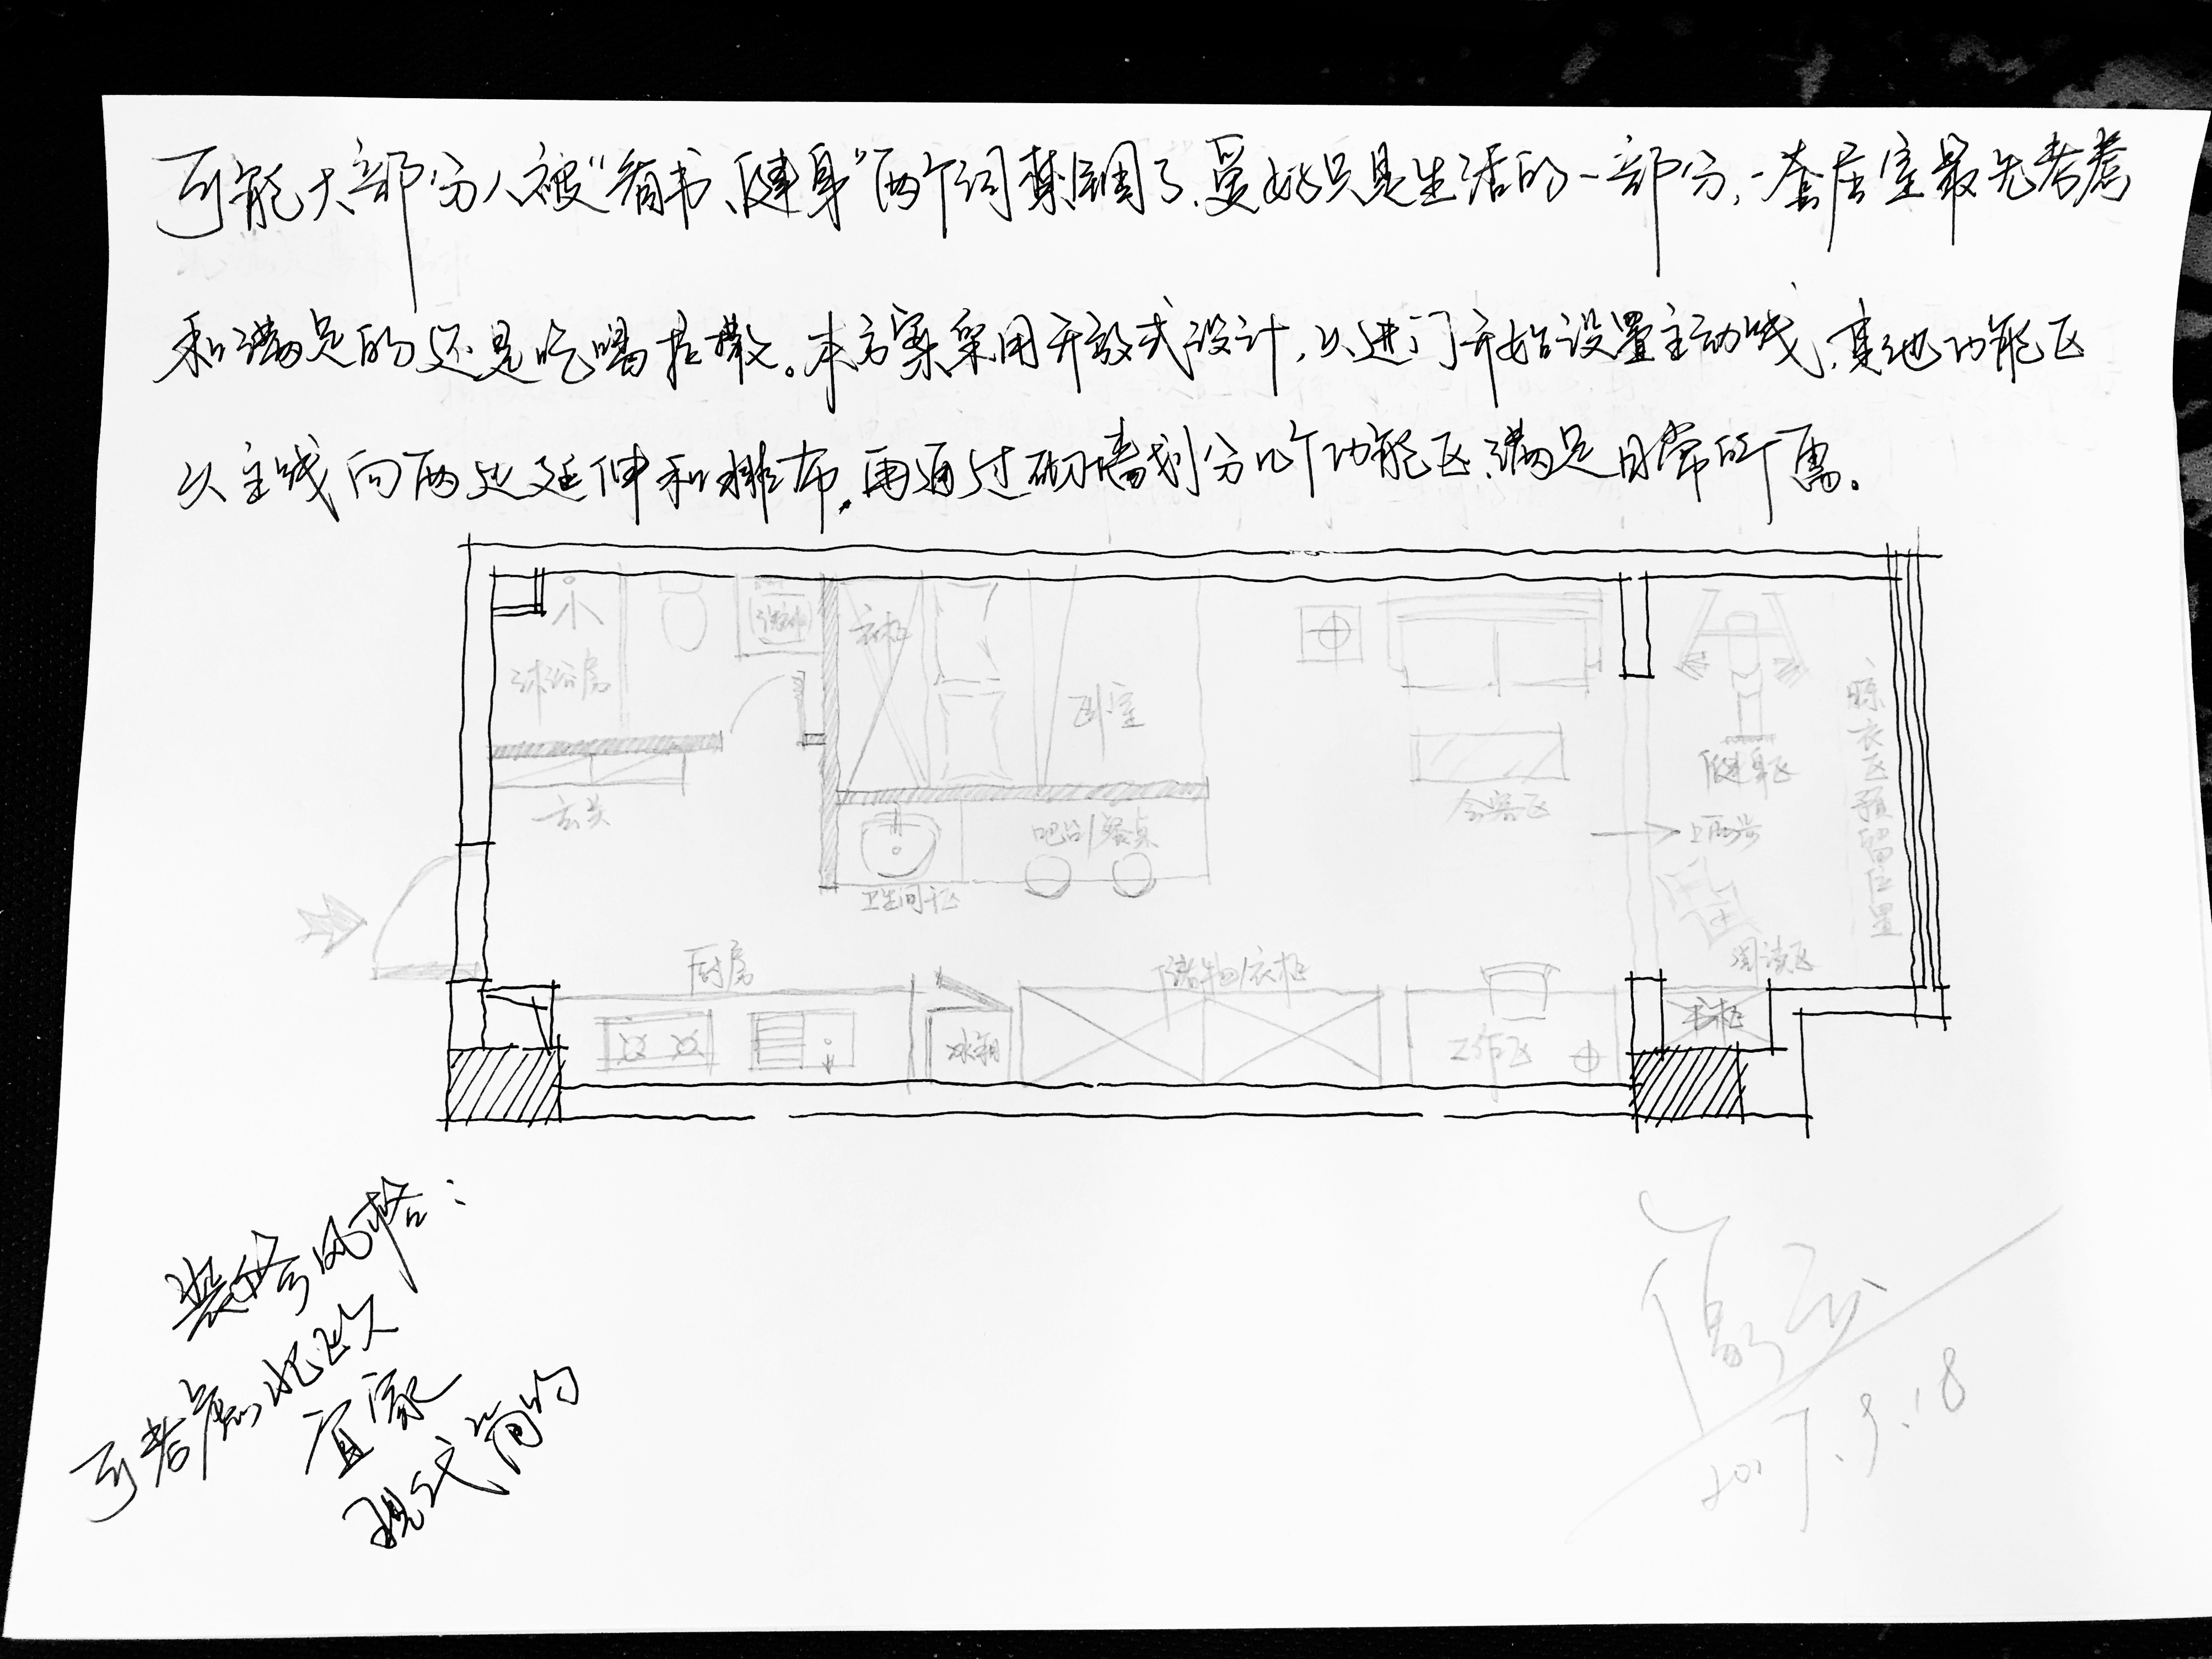 可能大部分人被“看书、健身”两个词禁锢了,爱好只是生活的一部分,一套居室最先考虑
和满足的还是吃喝拉撒。本方案采用开放式设计,以进门开始设置主动线,其他功能区
以主线向两边延伸和排布,再通过砌墙划分几个功能区,满足日常所需。
沐浴房
洗衣机
衣柜
卧室
玄关
卫生间柜
吧台/餐桌
会客区
健身区
上两步
晾衣区预留位置
阅读区
书柜
厨房
冰箱
储物/衣柜
工作区
装修风格:
可考虑北欧
宜家
现代简约
2017.9.18